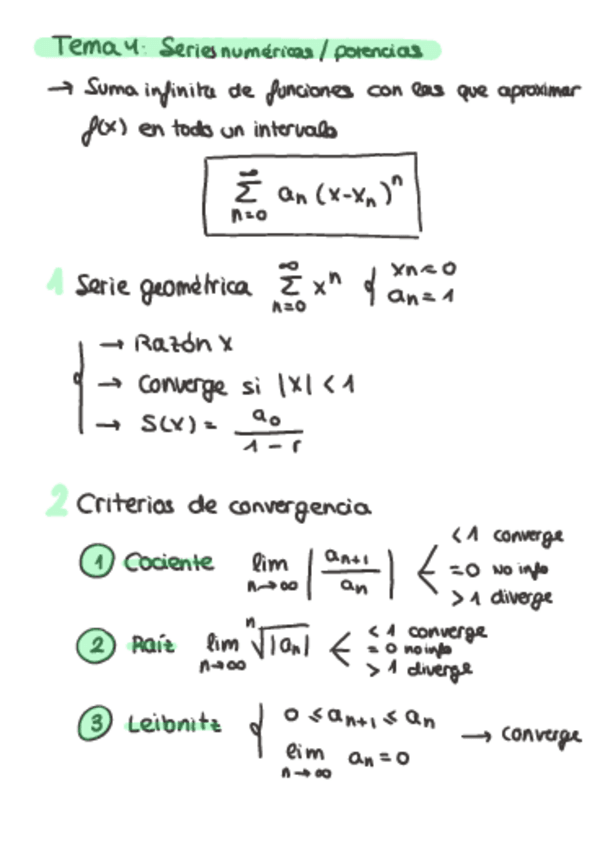 Tema 4: Series numéricas / potencias
→ Suma infinita de funciones con las que aproximar
f(x) en todo un intervalo
∞ Σ n=0 an (x-xn)^n
1 Serie geométrica ∞ Σ n=0 x^n { xn=0 an=1
→ Razón x
→ Converge si |x| < 1
→ S(x) = a0 / 1 - r
2 Criterios de convergencia
1 Cociente lim n→∞ | an+1 / an | < 1 converge
= 0 no info
> 1 diverge
2 Raíz lim n→∞ n√|an| < 1 converge
= 0 no info
> 1 diverge
3 Leibnitz { 0 ≤ an+1 ≤ an
lim n→∞ an = 0 → converge